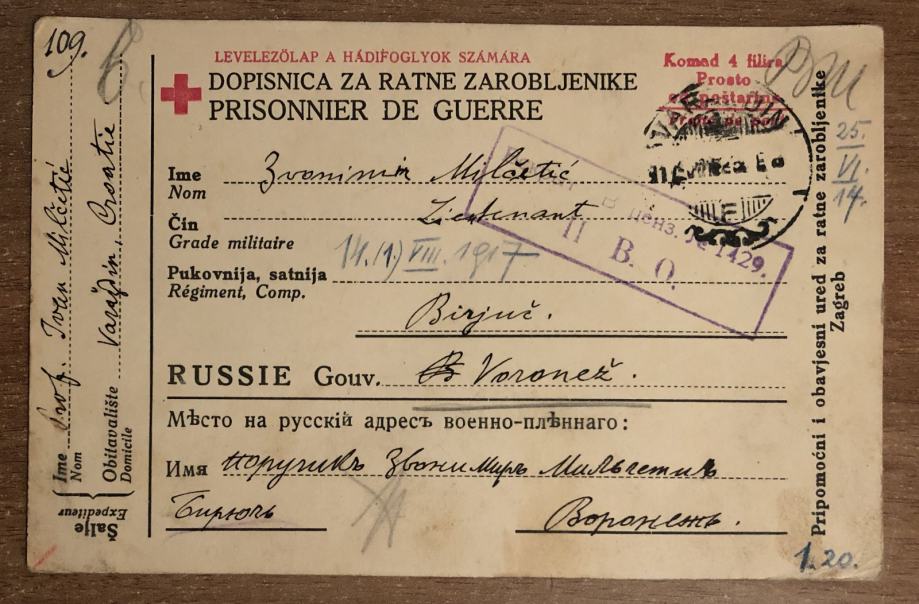 109.
LEVELEZŐLAP A HÁDIFOGLYOK SZÁMÁRA
DOPISNICA ZA RATNE ZAROBLJENIKE
PRISONNIER DE GUERRE
Komad 4 filira
Prosto
od poštarine
Ime Zvonimir Milčetić
Nom
Čin Lieutenant
Grade militaire
14.(1) VIII. 1917
Pukovnija, satnija
Régiment, Comp.
Birjuč.
RUSSIE Gouv. Voronež.
Мѣсто на русскій адресъ военно-плѣннаго:
Имя поручикъ Звонимиръ Мильчетичъ
Бирючь Воронежъ.
Šalje
Expéditeur
Ime Prof. Ivan Milčetić
Nom
Obitavalište Varaždin, Croatie
Domicile
Pripomoćni i obavjesni ured za ratne zarobljenike
Zagreb
25.
VI.
14.
ценз. № 1429.
П. В. О.
1.20.